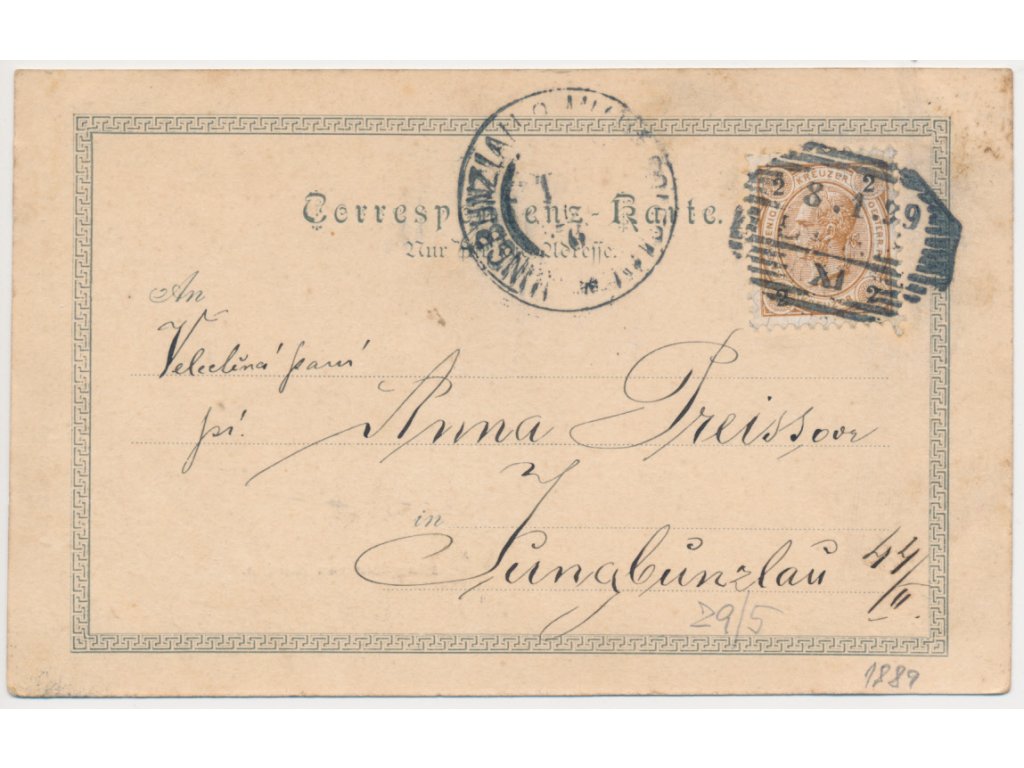 JUNGBUNZLAU
KREUZER
2 2
8.1.99
XI
2 2
Corresp enz-Karte.
Nur Adresse.
An
Velectěná paní
pí. Anna Preissove
in Jungbunzlau 44/II.
29/5
1889